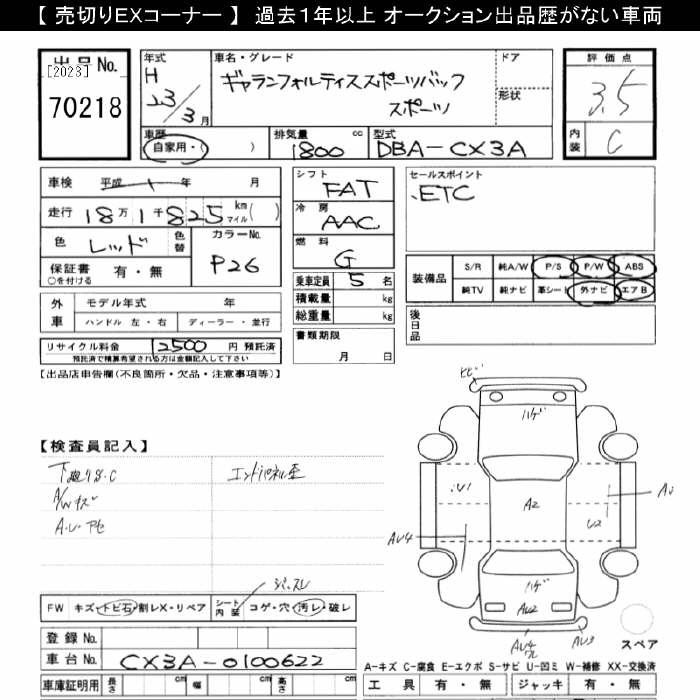 【 売切りEXコーナー 】 過去１年以上 オークション出品歴がない車両
出品No.
[2023]
70218
年式
H
23/3月
車名・グレード
ギャランフォルティススポーツバック
スポーツ
ドア
形状
評価点
3.5
内装
C
車歴
自家用・( )
排気量 cc
1800
型式
DBA-CX3A
車検 平成 年 月
走行 18万1千825 km マイル( )
色 レッド 色替
カラーNo.
P26
保証書 有・無
○を付ける
シフト
FAT
冷房
AAC
燃料
G
乗車定員 5 名
積載量 kg
総重量 kg
書類期限
月 日
セールスポイント
.ETC
装備品
S/R 純A/W P/S P/W ABS
純TV 純ナビ 革シート 外ナビ エアB
後日品
外車
モデル年式 年
ハンドル 左・右 ディーラー・並行
リサイクル料金 12500 円 預託済
預託済で精算希望される方は金額記入して下さい
【出品店申告欄(不良箇所・欠品・注意事項等)】
【検査員記入】
A/Wキズ
A.U.アセ
エンドパネル歪
FW キズ・トビ石・割レX・リペア
シート内装 コゲ・穴・汚レ・破レ
登録No.
車台No. CX3A-0100622
車庫証明用 長さ cm 幅 cm 高さ cm
ヒビ
ハゲ
A2
U2
AU4
ハゲ
AU2
AU3
スペア
A-キズ C-腐食 E-エクボ S-サビ U-凹ミ W-補修 XX-交換済
工具 有・無 ジャッキ 有・無